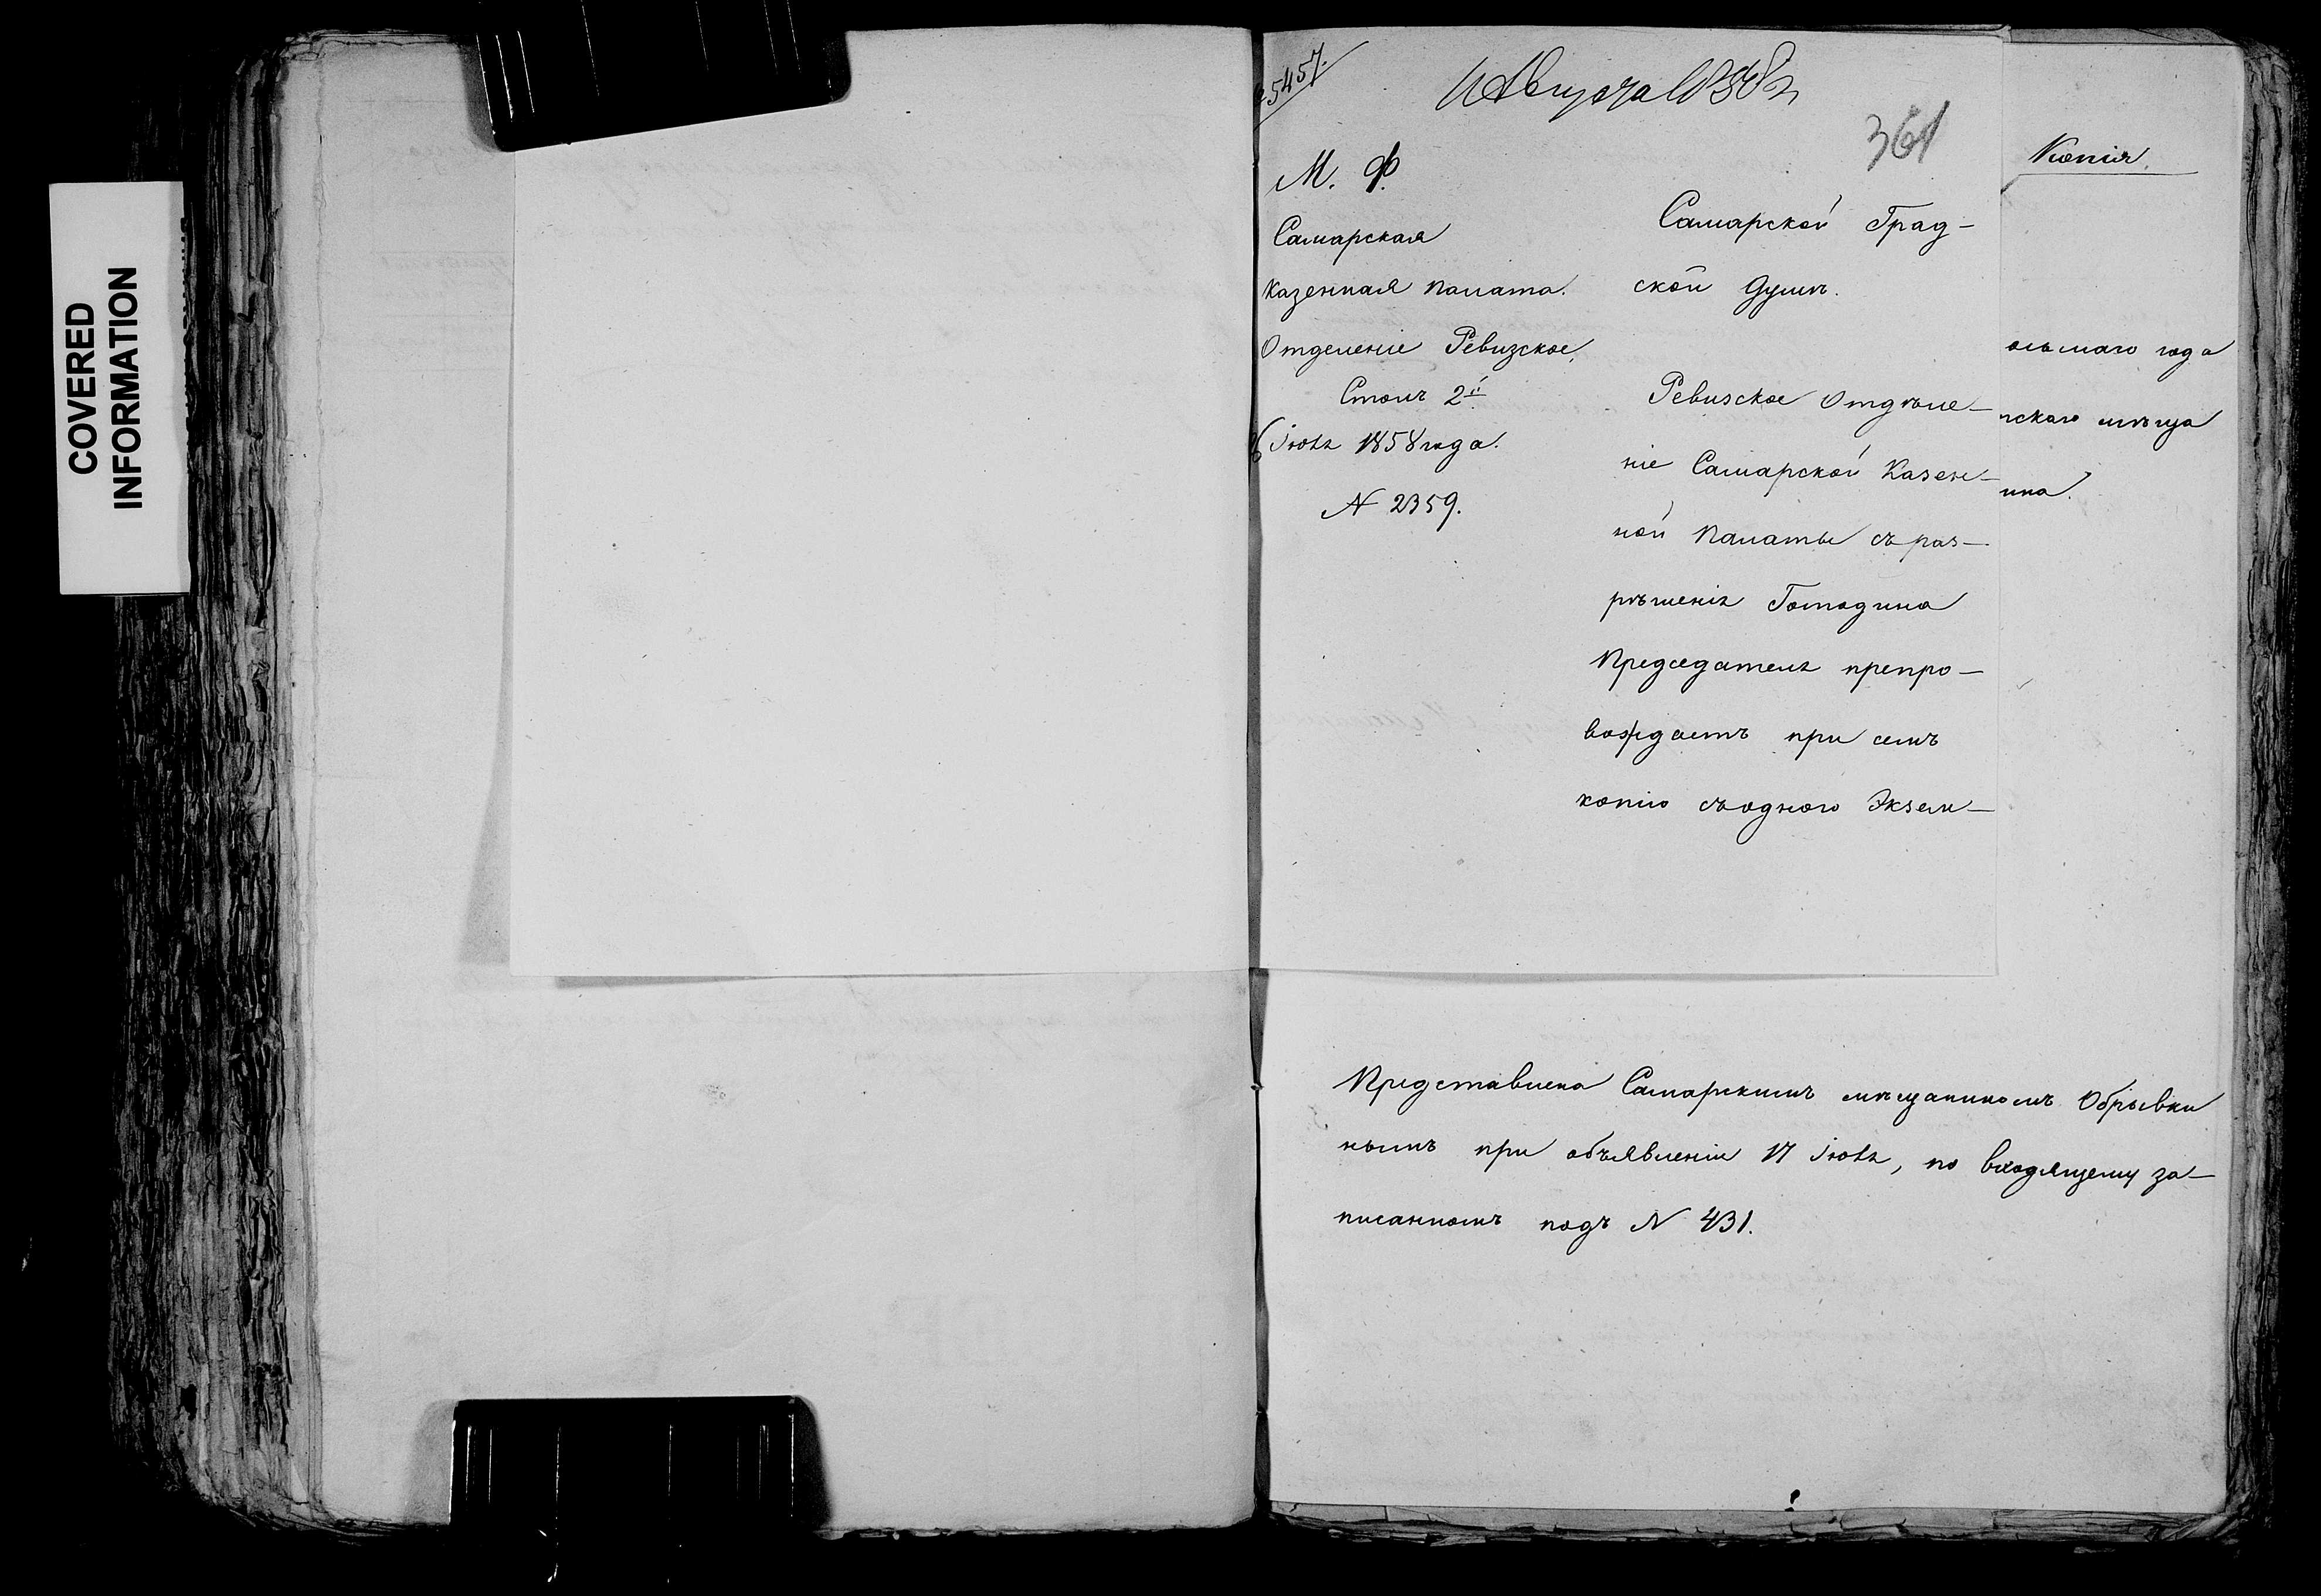 COVERED
INFORMATION
5457.
11 Августа 1858 г
361
М. Ф.
Самарская
Казенная Палата.
Отделенiе Ревизское,
Столъ 2й
Iюля 1858 года.
N 2359.
Самарской Град-
ской Думѣ.
Ревизское Отдѣле-
нiе Самарской Казен-
ной Палаты съ раз-
рѣшенiя Господина
Председателя препро-
вождаетъ при семъ
копiю съ одного Экзем-
Копiя.
осьмаго года
нскаго мѣща
ина.
Представлена Самарскимъ мѣщаниномъ Обрывки
нымъ при объявленiи 17 Iюля, по входящему за-
писанномъ подъ N 431.